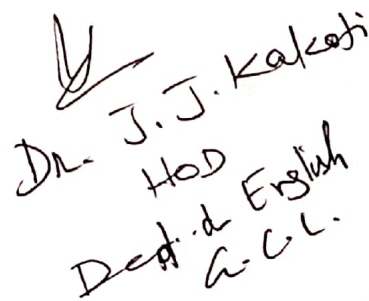 Dr. J. J. Kakoti
HOD
Dept. of English
G. C. C.